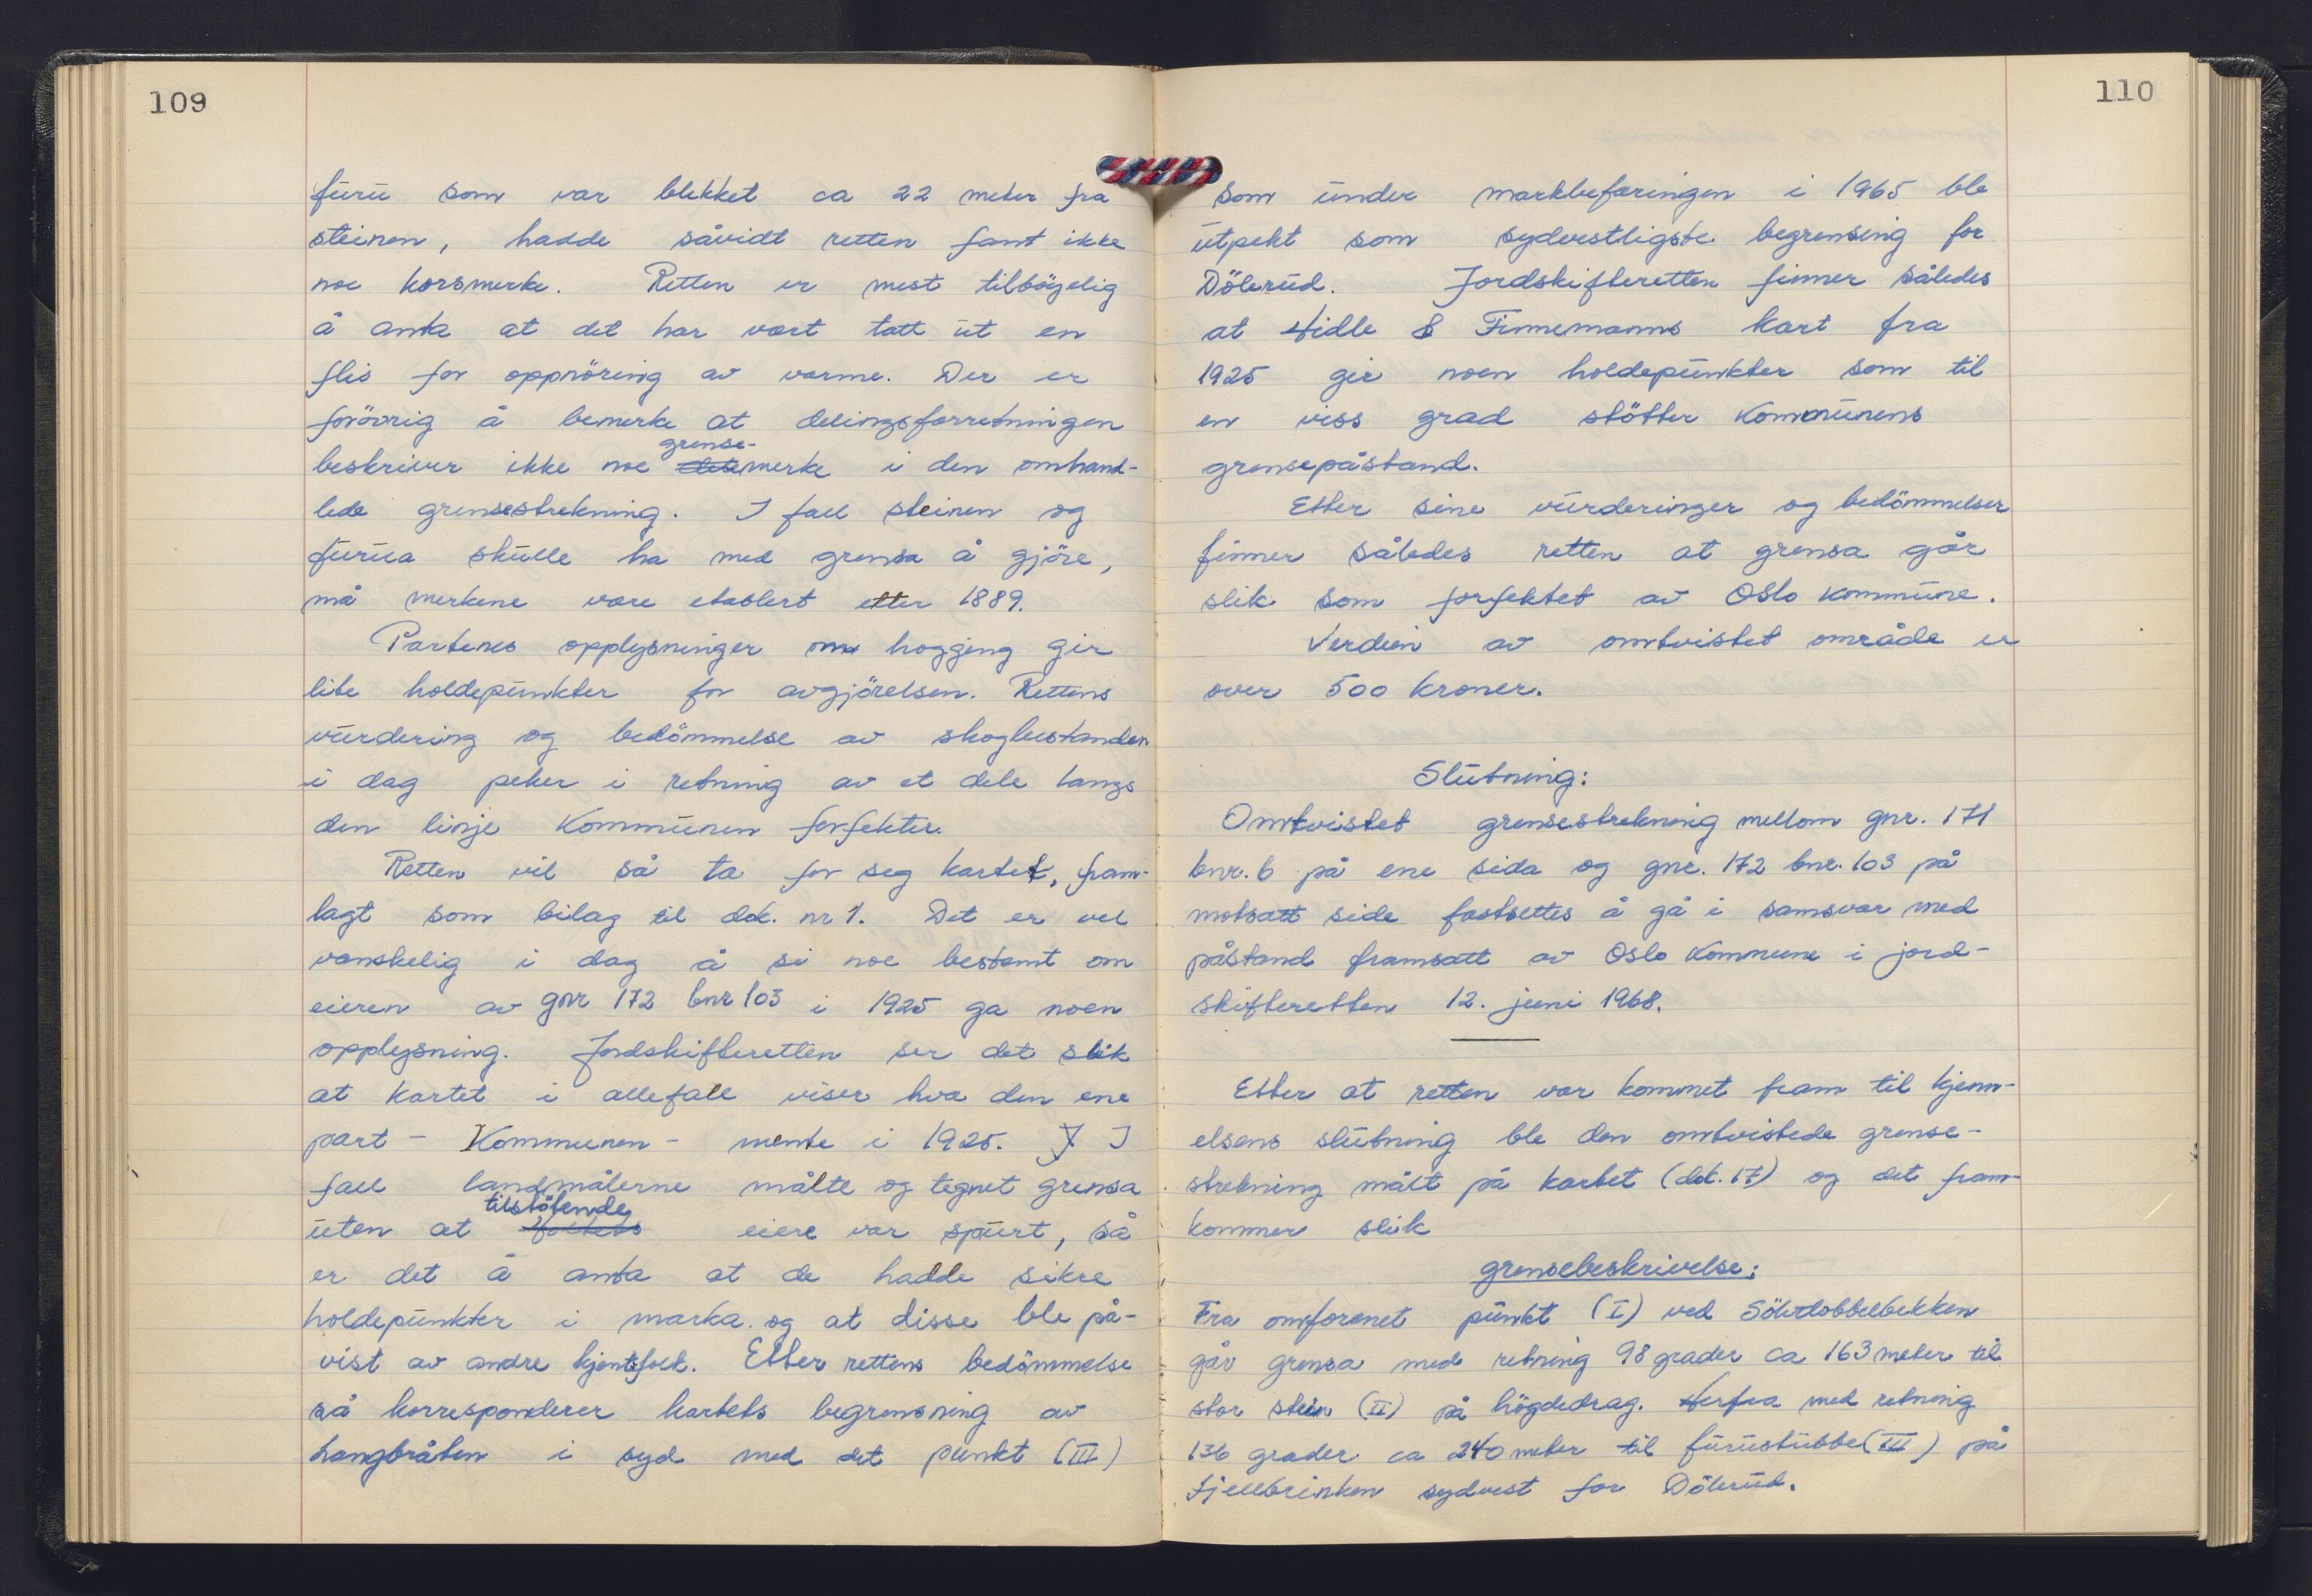 109
furu som var blekket ca 22 meter fra
steinen, hadde såvidt retten fant ikke
noe korsmerke. Retten er mest tilböyelig
å anta at det har vært tatt ut en
flis for oppnöring av varme. Der er
forövrig å bemerke at delingsforretningen
grense-
beskriver ikke noe merke i den omhand-
lede grensestrekning. I fall steinen og
furua skulle ha med grensa å gjöre,
må merkene være etablert etter 1889.
Partenes opplysninger om hogging gir
lite holdepunkter for avgjörelsen. Rettens
vurdering og bedömmelse av skogbestanden
i dag peker i retning av et dele langs
den linje Kommunen forfekter.
Retten vil så ta for seg kartet, fram-
lagt som bilag til dok. nr 1. Det er vel
vanskelig i dag å si noe bestemt om
eieren av gnr 172 bnr 103 i 1925 ga noen
opplysning. Jordskifteretten ser det slik
at kartet i allefall viser hva den ene
part - Kommunen - mente i 1925. I
fall landmålerne målte og tegnet grensa
tilstötende
uten at eiere var spurt, så
er det å anta at de hadde sikre
holdepunkter i marka og at disse ble på-
vist av andre kjentfolk. Etter rettens bedömmelse
så korresponderer kartets begrensning av
Langbråten i syd med det punkt (III)
110
som under markbefaringen i 1965 ble
utpekt som sydvestligste begrensing for
Dölerud. Jordskifteretten finner således
at Hidle & Finnemanns kart fra
1925 gir noen holdepunkter som til
en viss grad stötter Kommunens
grensepåstand.
Etter sine vurderinger og bedömmelser
finner således retten at grensa går
slik som forfektet av Oslo kommune.
Verdien av omtvistet område er
over 500 kroner.
Slutning:
Omtvistet grensestrekning mellom gnr. 171
bnr. 6 på ene sida og gnr. 172 bnr. 103 på
motsatt side fastsettes å gå i samsvar med
påstand framsatt av Oslo Kommune i jord-
skifteretten 12. juni 1968.
Etter at retten var kommet fram til kjenn-
elsens slutning ble den omtvistede grense-
strekning målt på kartet (dok. 17) og det fram-
kommer slik
grensebeskrivelse:
Fra omforenet punkt (I) ved Sölvdobbelbekken
går grensa med retning 98 grader ca 163 meter til
stor stein (II) på högdedrag. Herfra med retning
136 grader ca 240 meter til furustubbe (III) på
Fjellbrinken sydvest for Dölerud.